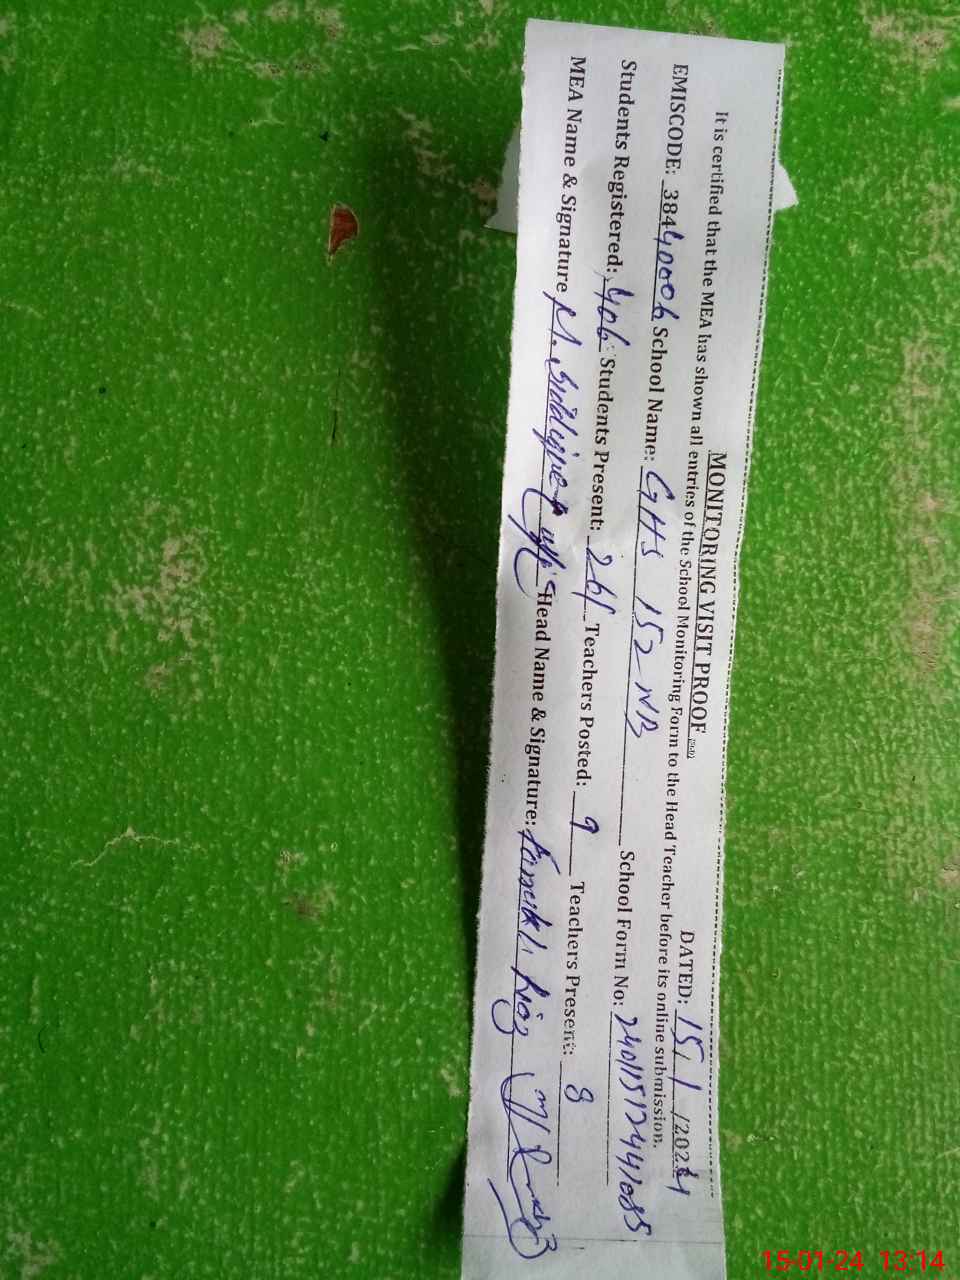 MONITORING VISIT PROOF
DATED: 15/1/2024
It is certified that the MEA has shown all entries of the School Monitoring Form to the Head Teacher before its online submission.
EMISCODE: 38440006 School Name: GHS 152 NB School Form No: 240115124441085
Students Registered: 406 Students Present: 261 Teachers Posted: 9 Teachers Present: 8
MEA Name & Signature M. Siddique Head Name & Signature: Riaz
15-01-24 13:14